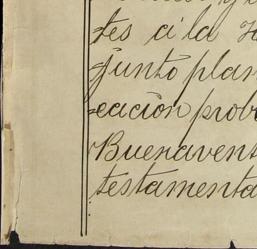 tes á la
junto plan
cación prob
Buenavent
testamenta